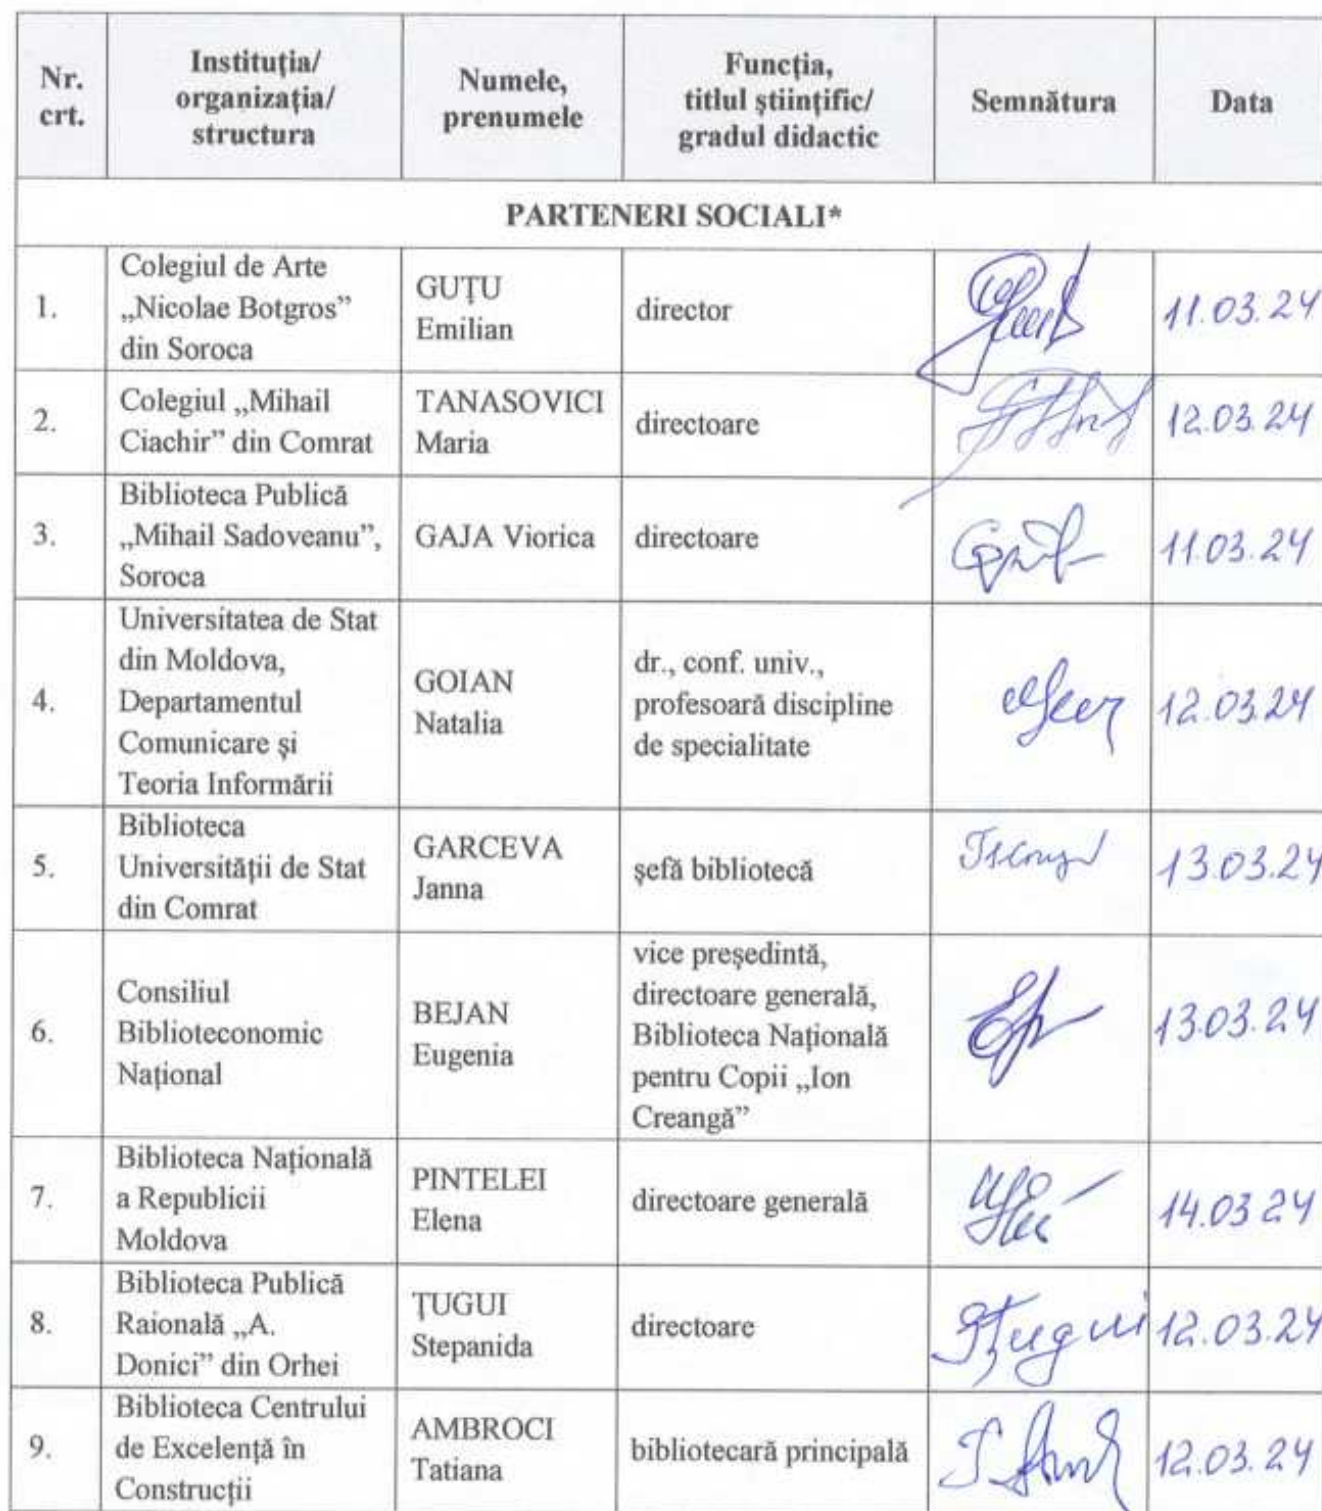 Nr.
crt.
Instituția/
organizația/
structura
Numele,
prenumele
Funcția,
titlul științific/
gradul didactic
Semnătura
Data
PARTENERI SOCIALI*
1.
Colegiul de Arte
„Nicolae Botgros”
din Soroca
GUȚU
Emilian
director
11.03.24
2.
Colegiul „Mihail
Ciachir” din Comrat
TANASOVICI
Maria
directoare
12.03.24
3.
Biblioteca Publică
„Mihail Sadoveanu”,
Soroca
GAJA Viorica
directoare
11.03.24
4.
Universitatea de Stat
din Moldova,
Departamentul
Comunicare și
Teoria Informării
GOIAN
Natalia
dr., conf. univ.,
profesoară discipline
de specialitate
12.03.24
5.
Biblioteca
Universității de Stat
din Comrat
GARCEVA
Janna
șefă bibliotecă
13.03.24
6.
Consiliul
Biblioteconomic
Național
BEJAN
Eugenia
vice președintă,
directoare generală,
Biblioteca Națională
pentru Copii „Ion
Creangă”
13.03.24
7.
Biblioteca Națională
a Republicii
Moldova
PINTELEI
Elena
directoare generală
14.03 24
8.
Biblioteca Publică
Raională „A.
Donici” din Orhei
ȚUGUI
Stepanida
directoare
12.03.24
9.
Biblioteca Centrului
de Excelență în
Construcții
AMBROCI
Tatiana
bibliotecară principală
12.03.24